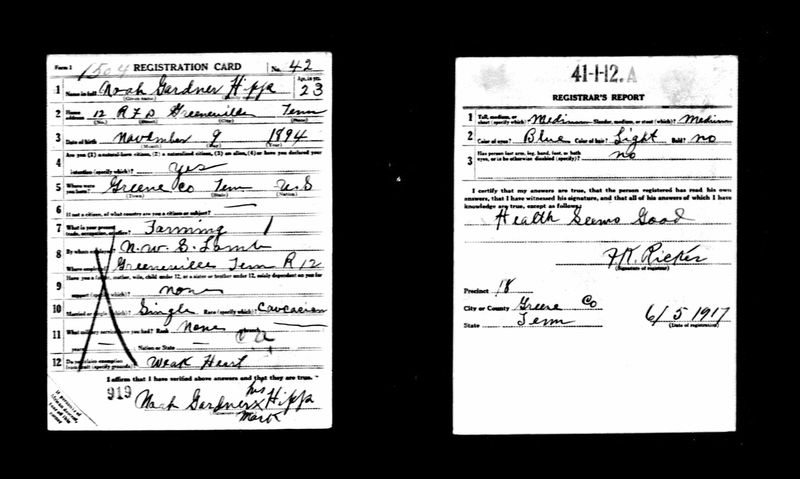 Form 1 1504 REGISTRATION CARD No. 42
1 Name in full Noah Gardner Hipp Age, in yrs. 23
(Given name)
2 Home address 12 RFD Greeneville Tenn
(No.) (Street) (City) (State)
3 Date of birth November 9 1894
(Month) (Day) (Year)
4 Are you (1) a natural-born citizen, (2) a naturalized citizen, (3) an alien, (4) or have you declared your
intention (specify which)? yes
5 Where were you born? Greene Co Tenn U.S
(Town) (State) (Nation)
6 If not a citizen, of what country are you a citizen or subject?
7 What is your present trade, occupation, or office? Farming 1
8 By whom employed? N.W. S. Lamb
Where employed? Greeneville Tenn R 12
9 Have you a father, mother, wife, child under 12, or a sister or brother under 12, solely dependent on you for
support (specify which)? none
10 Married or single (which)? Single Race (specify which)? Caucasian
11 What military service have you had? Rank None
years Nation or State
12 Do you claim exemption from draft (specify grounds)? Weak Heart
I affirm that I have verified above answers and that they are true.
919 his
Noah Gardner x Hipp
Mark
41-1-12. A
REGISTRAR'S REPORT
1 Tall, medium, or short (specify which)? Medium Slender, medium, or stout (which)? Medium
2 Color of eyes? Blue Color of hair? Light Bald? no
3 Has person lost arm, leg, hand, foot, or both
eyes, or is he otherwise disabled (specify)? no
I certify that my answers are true, that the person registered has read his own
answers, that I have witnessed his signature, and that all of his answers of which I have
knowledge are true, except as follows:
Health Seems Good
F.K. Ricker
(Signature of registrar)
Precinct 18
City or County Greene Co
State Tenn 6/5 1917
(Date of registration)